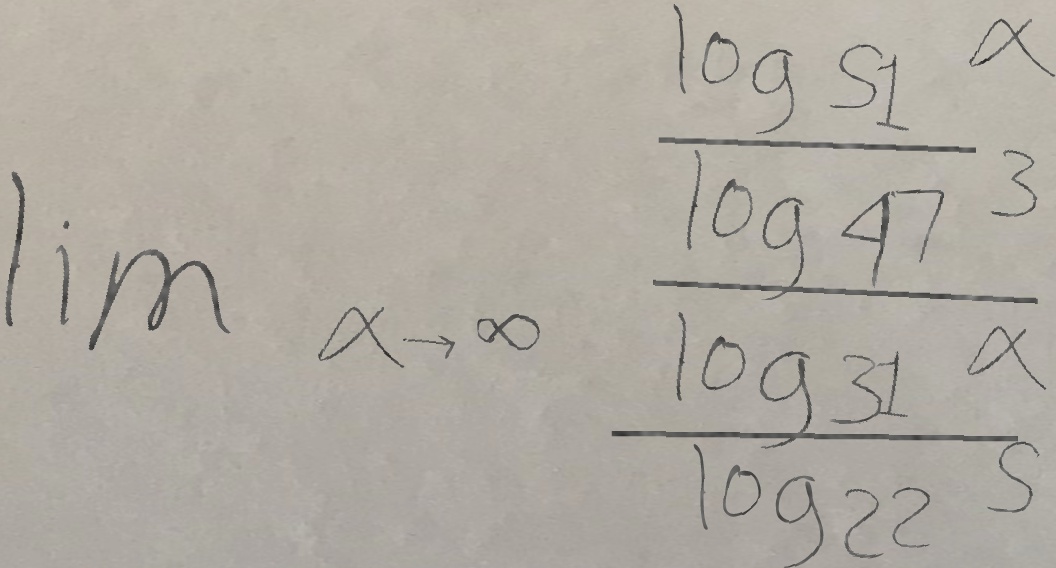 \lim_{\alpha \to \infty} \frac{\frac{\log_{51} \alpha}{\log_{47} 3}}{\frac{\log_{31} \alpha}{\log_{22} 5}}